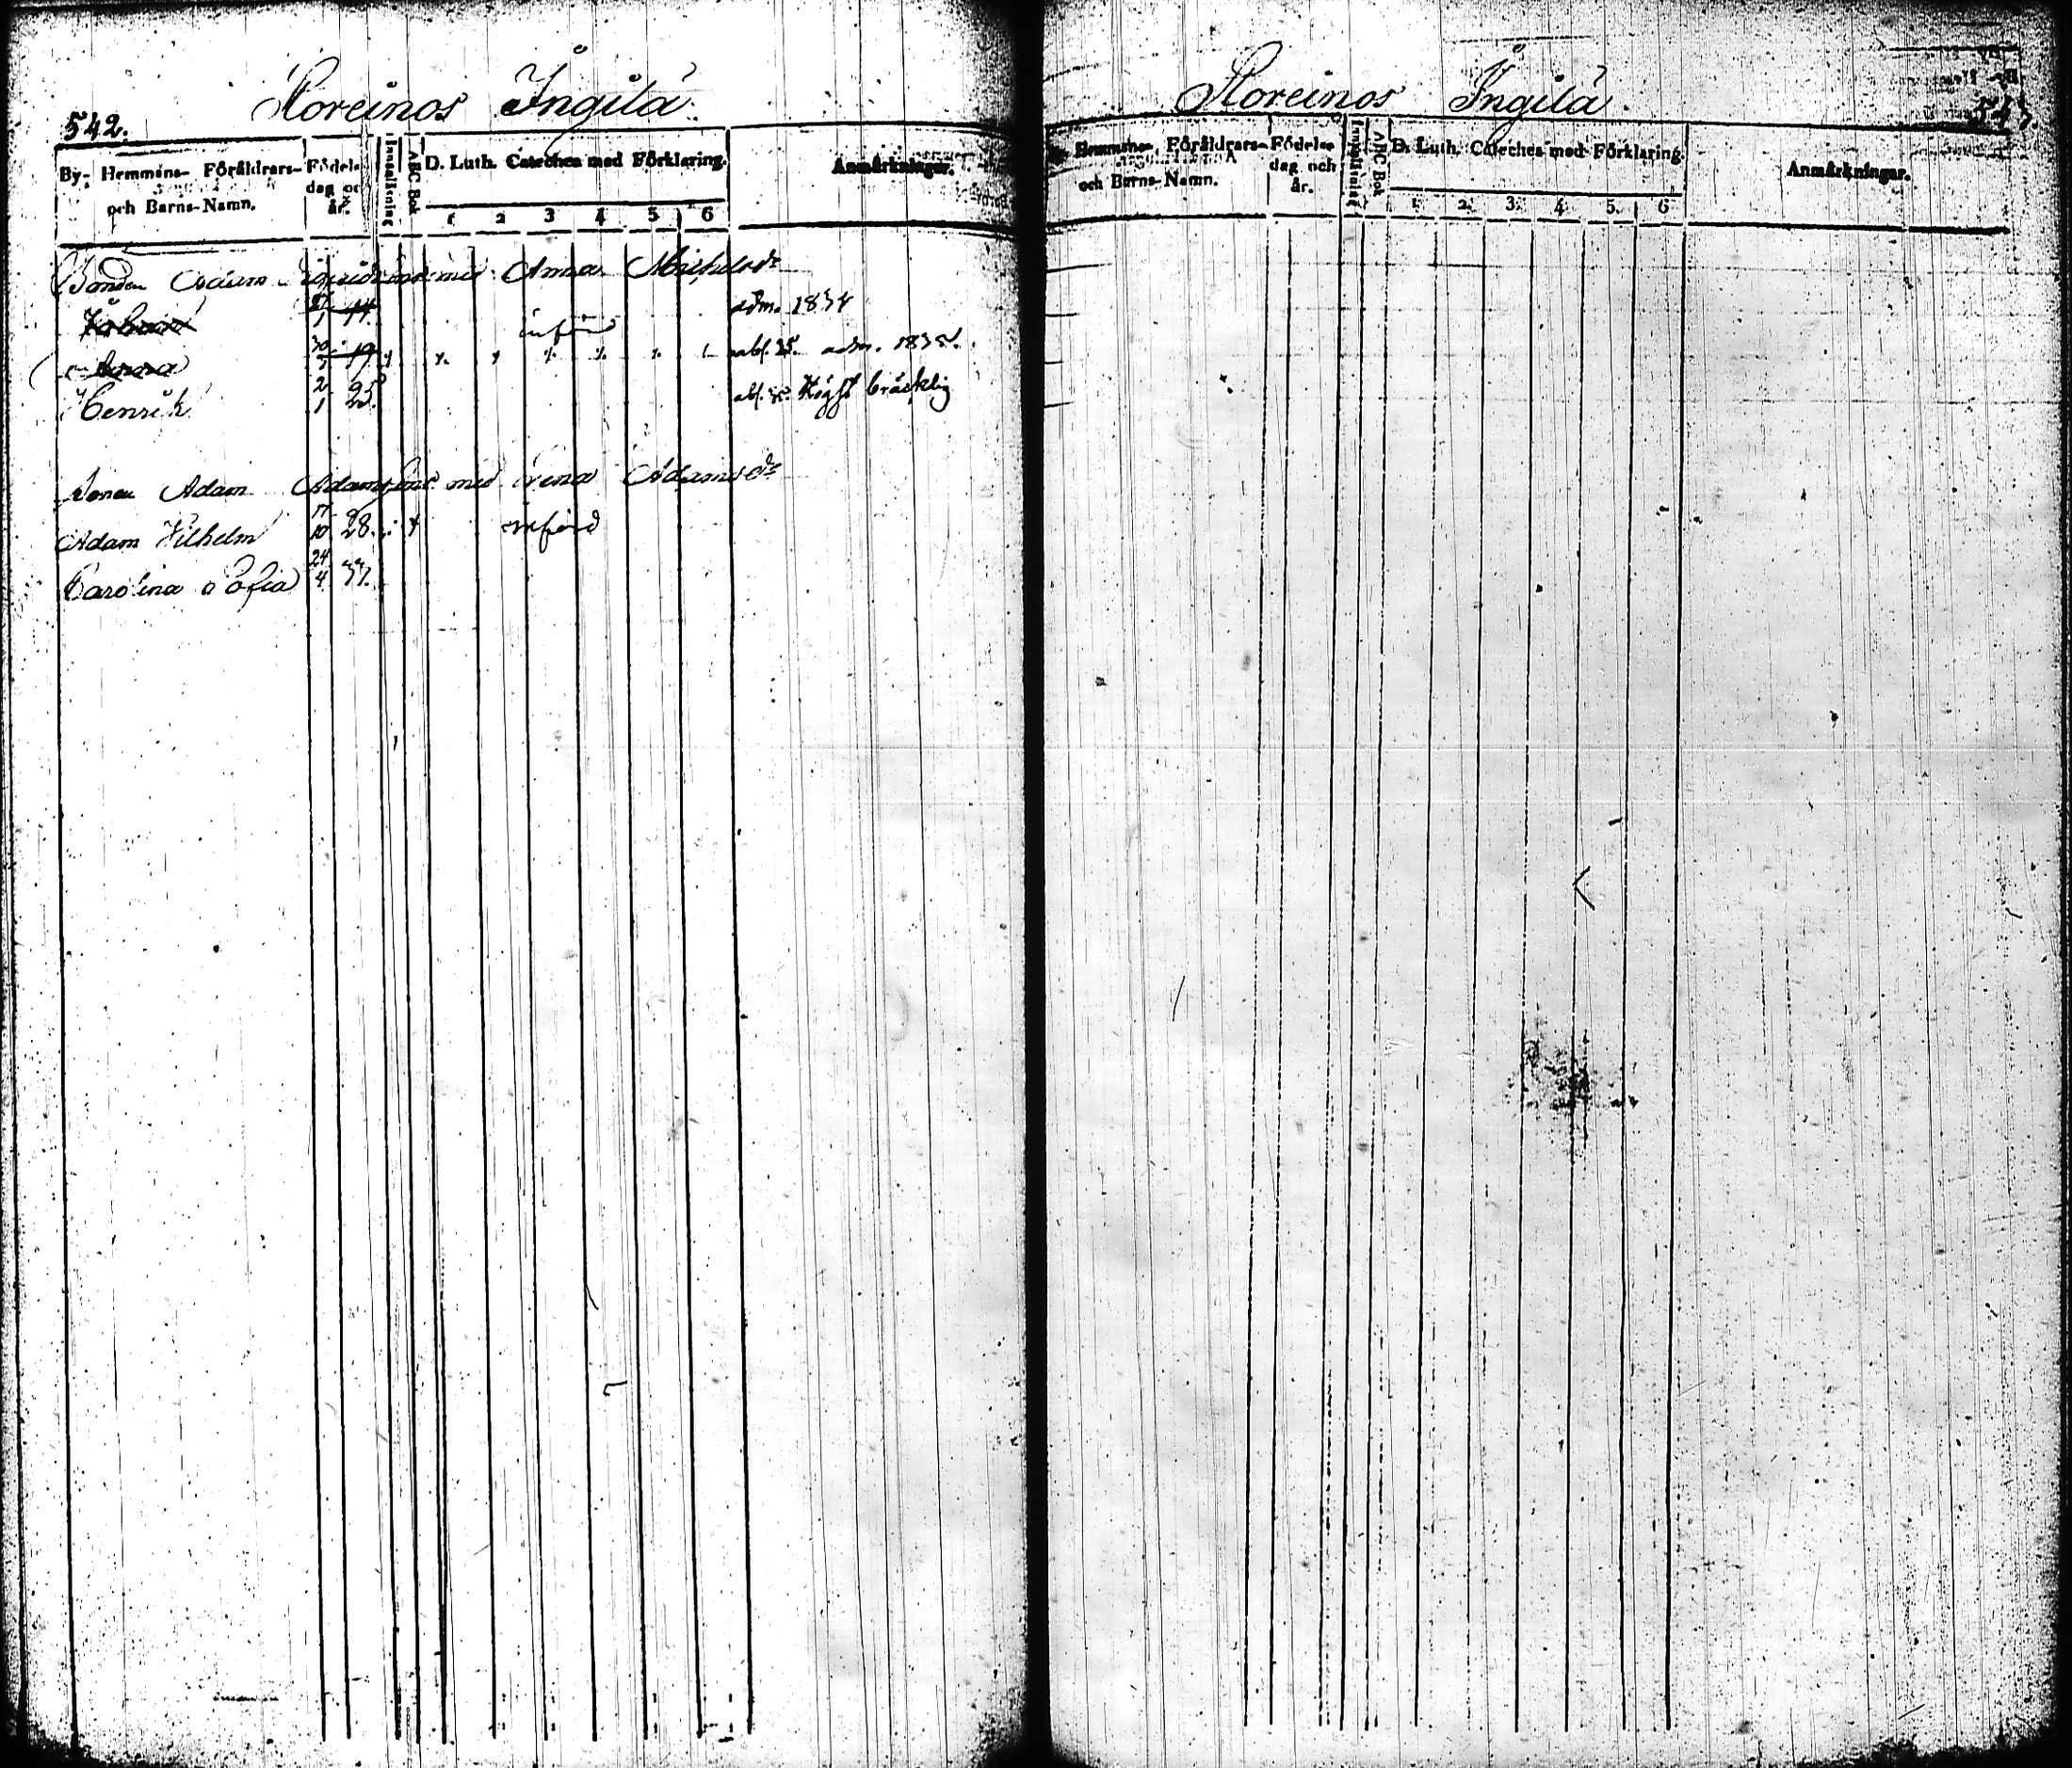 542.
Koreinos Ingilä
By-, Hemmans- Föräldrars- och Barns-Namn.
Födelse dag och år.
Innanläsning
ABC Bok
D. Luth. Cateches med Förklaring.
1 2 3 4 5 6
Anmärkningar.
Bonden Adam med Anna Michelsdr
Johan 27 44. införd adm. 1834
Anna 30 19 abs. 35. adm. 1835.
Henrik 2/1 25. abs. 35. Högst bräcklig
Sonen Adam Adamsson med Lena Adamsdr
Adam Vilhelm 17/10 28. införd
Carolina Sofia 24/4 37.
Koreinos Ingilä.
543
Hemmans, Föräldrars- och Barns-Namn.
Födelse dag och år.
Innanläsning
ABC Bok
D. Luth. Cateches med Förklaring.
1. 2. 3. 4. 5. 6
Anmärkningar.